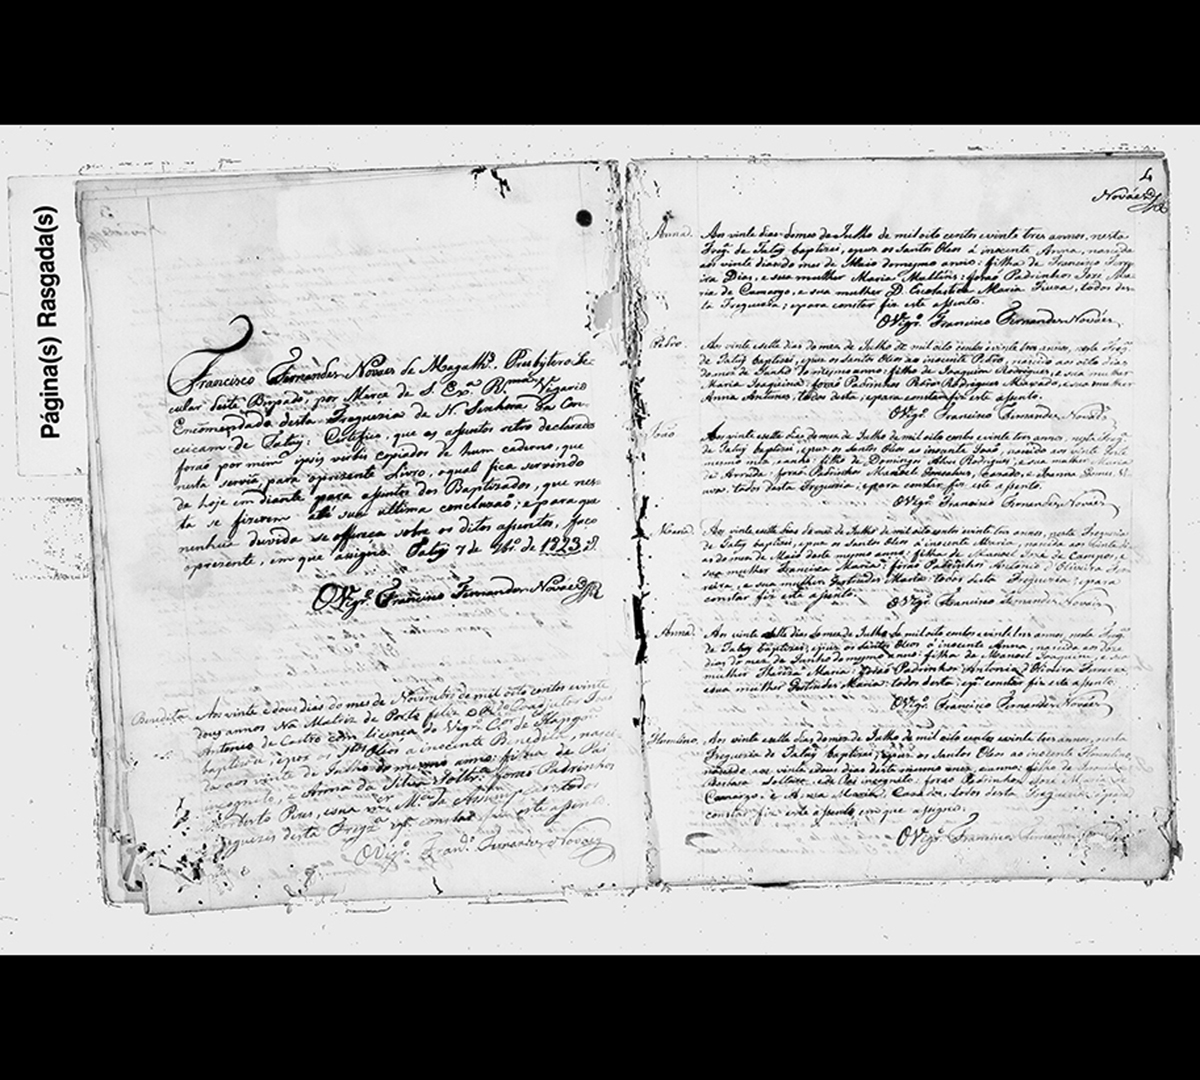 Página(s) Rasgada(s)
Francisco Fernandes Novaes de Magalhs. Presbytero Se-
cular deste Bispado, por Merce de S. Exa. Rma. Vigario
Encomendado desta Freguezia de N. Senhora da Con
ceicam de Tatuy: Certifico, que os aßentos retro declarados
forão por mim ipsis verbis copiados de hum caderno, que
nesta servia, para opresente Livro, oqual fica servindo
de hoje em diante para aßentos dos Baptizados, que nes-
ta se fizerem até sua ultima conclusaõ; epara que
nenhuã duvida se offereca sobre os ditos aßentos, faço
apresente, em que assigno. Tatuy 7 de 9bro. de 1823
O Vigro. Francisco Fernandes Novaes
Benedita Aos vinte edous dias do mes de Novembro de mil oito centos evinte
dous annos Na Matriz de Porto feliz o Rdo. Coadjutor João
Antonio de Castro com licença do Vigro. Cor. de Itapga.
baptizou, epoz os Stos Oleos a inocente Benedita, nasci
da aos vinte de Julho do mesmo anno: filha de Pai
incognito, e Anna da Silva Solteira: forão Padrinhos
Pires, esua mer. Ma. da
guezes desta Fregª. constar fiz este aßento
O Vigro. Frando. Fernandes Novaes
4
Novaes
Anna. Aos vinte dias do mes de Julho de mil oito centos evinte tres annos, nesta
Fregª. de Tatuy baptizei, epuz os Santos Oleos á inocente Anna, nascida
aos vinte dias do mes de Maio do mesmo anno: filha de Francisco Ferre
ira Dias, e sua mulher Maria Martins: forão Padrinhos José Ma-
ria de Camargo, e sua mulher D. Escolastica Maria todos des-
ta Freguezia; epara constar fiz este aßento.
O Vigro. Francisco Fernandes Novaes
Pedro. Aos vinte esette dias do mes de Julho de mil oito centos evinte tres annos, nesta Fregª.
de Tatuy baptizei, epuz os Santos Oleos ao inocente Pedro, nascido aos oito dias
do mes de Junho do mesmo anno: filho de Joaquim Rodrigues, e sua mulher
Maria Joaquina: forão Padrinhos Pedro Rodrigues Machado, e sua mulher
Anna Antonia, todos desta; epara constar fiz este aßento.
O Vigro. Francisco Fernandes Novaes
João Aos vinte esette dias do mes de Julho de mil oito centos evinte tres annos, nesta Fregª.
de Tatuy baptizei, epuz os Santos Oleos ao inocente João, nascido aos vinte deste
mesmo mes, eanno, filho de Domingos Alves Rodrigues, e sua mulher Maria
de Arruda: forão Padrinhos Manoel Gonsalves, Cazado, e Joanna
todos desta Freguezia; epara constar fiz este aßento.
O Vigro. Francisco Fernandes Novaes
Maria. Aos vinte esette dias do mes de Julho de mil oito centos evinte tres annos, nesta Freguezia
de Tatuy baptizei, epuz os Santos Oleos á inocente Maria, nascida aos
as do mes de Maio deste mesmo anno: filha de Manoel José de Campos, e
sua mulher Francisca Maria: forão Padrinhos Antonio d'Oliveira Fer-
reira, e sua mulher Gertrudes Maria: todos desta Freguezia; epara
constar fiz este aßento.
O Vigro. Francisco Fernandes Novaes
Anna. Aos vinte esette dias do mes de Julho de mil oito centos evinte tres annos, nesta Fregª.
de Tatuy baptizei, epuz os Santos Oleos á inocente Anna, nascida aos doze
dias do mes de Junho do mesmo anno: filha de Manoel Joaquim, e sua
mulher Thereza Maria: forão Padrinhos Antonio d'Oliveira Ferreira,
esua mulher Gertrudes Maria: todos desta; epª. constar fiz este aßento.
O Vigro. Francisco Fernandes Novaes
Aos vinte esette dias do mes de Julho de mil oito centos evinte tres annos, nesta
Freguezia de Tatuy baptizei, epuz os Santos Oleos ao inocente
nascido aos vinte edous dias deste mesmo mes, eanno: filho de
Barbara Solteira, ede Pai incognito: forão Padrinhos José Maria de
Camargo, e Anna Maria, todos desta Freguezia; epara
constar fiz este aßento, em que assignei.
O Vigro. Francisco Fernandes Novaes